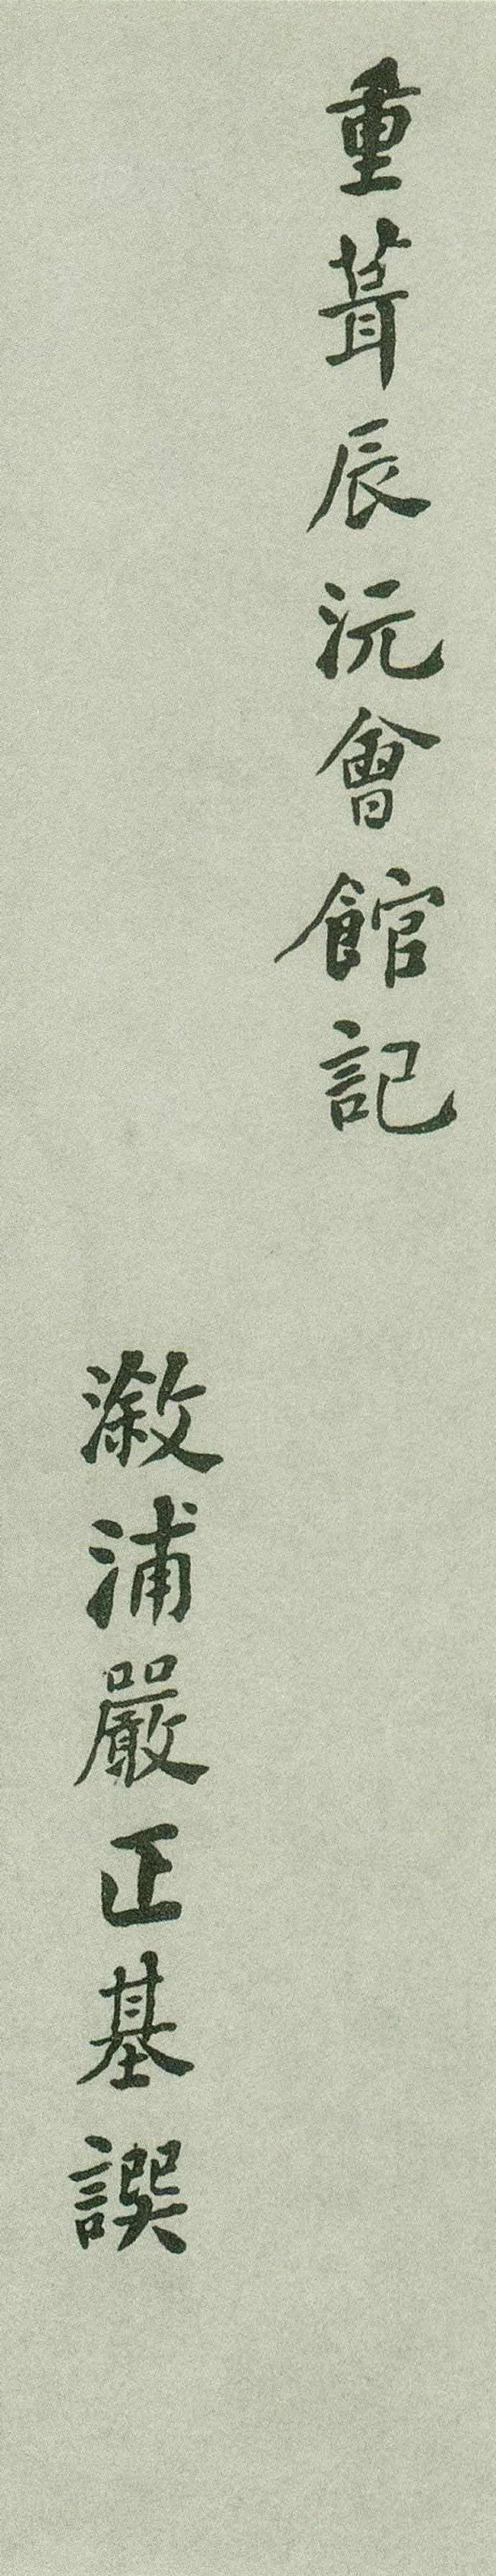 重葺辰沅會館記
漵浦嚴正基譔